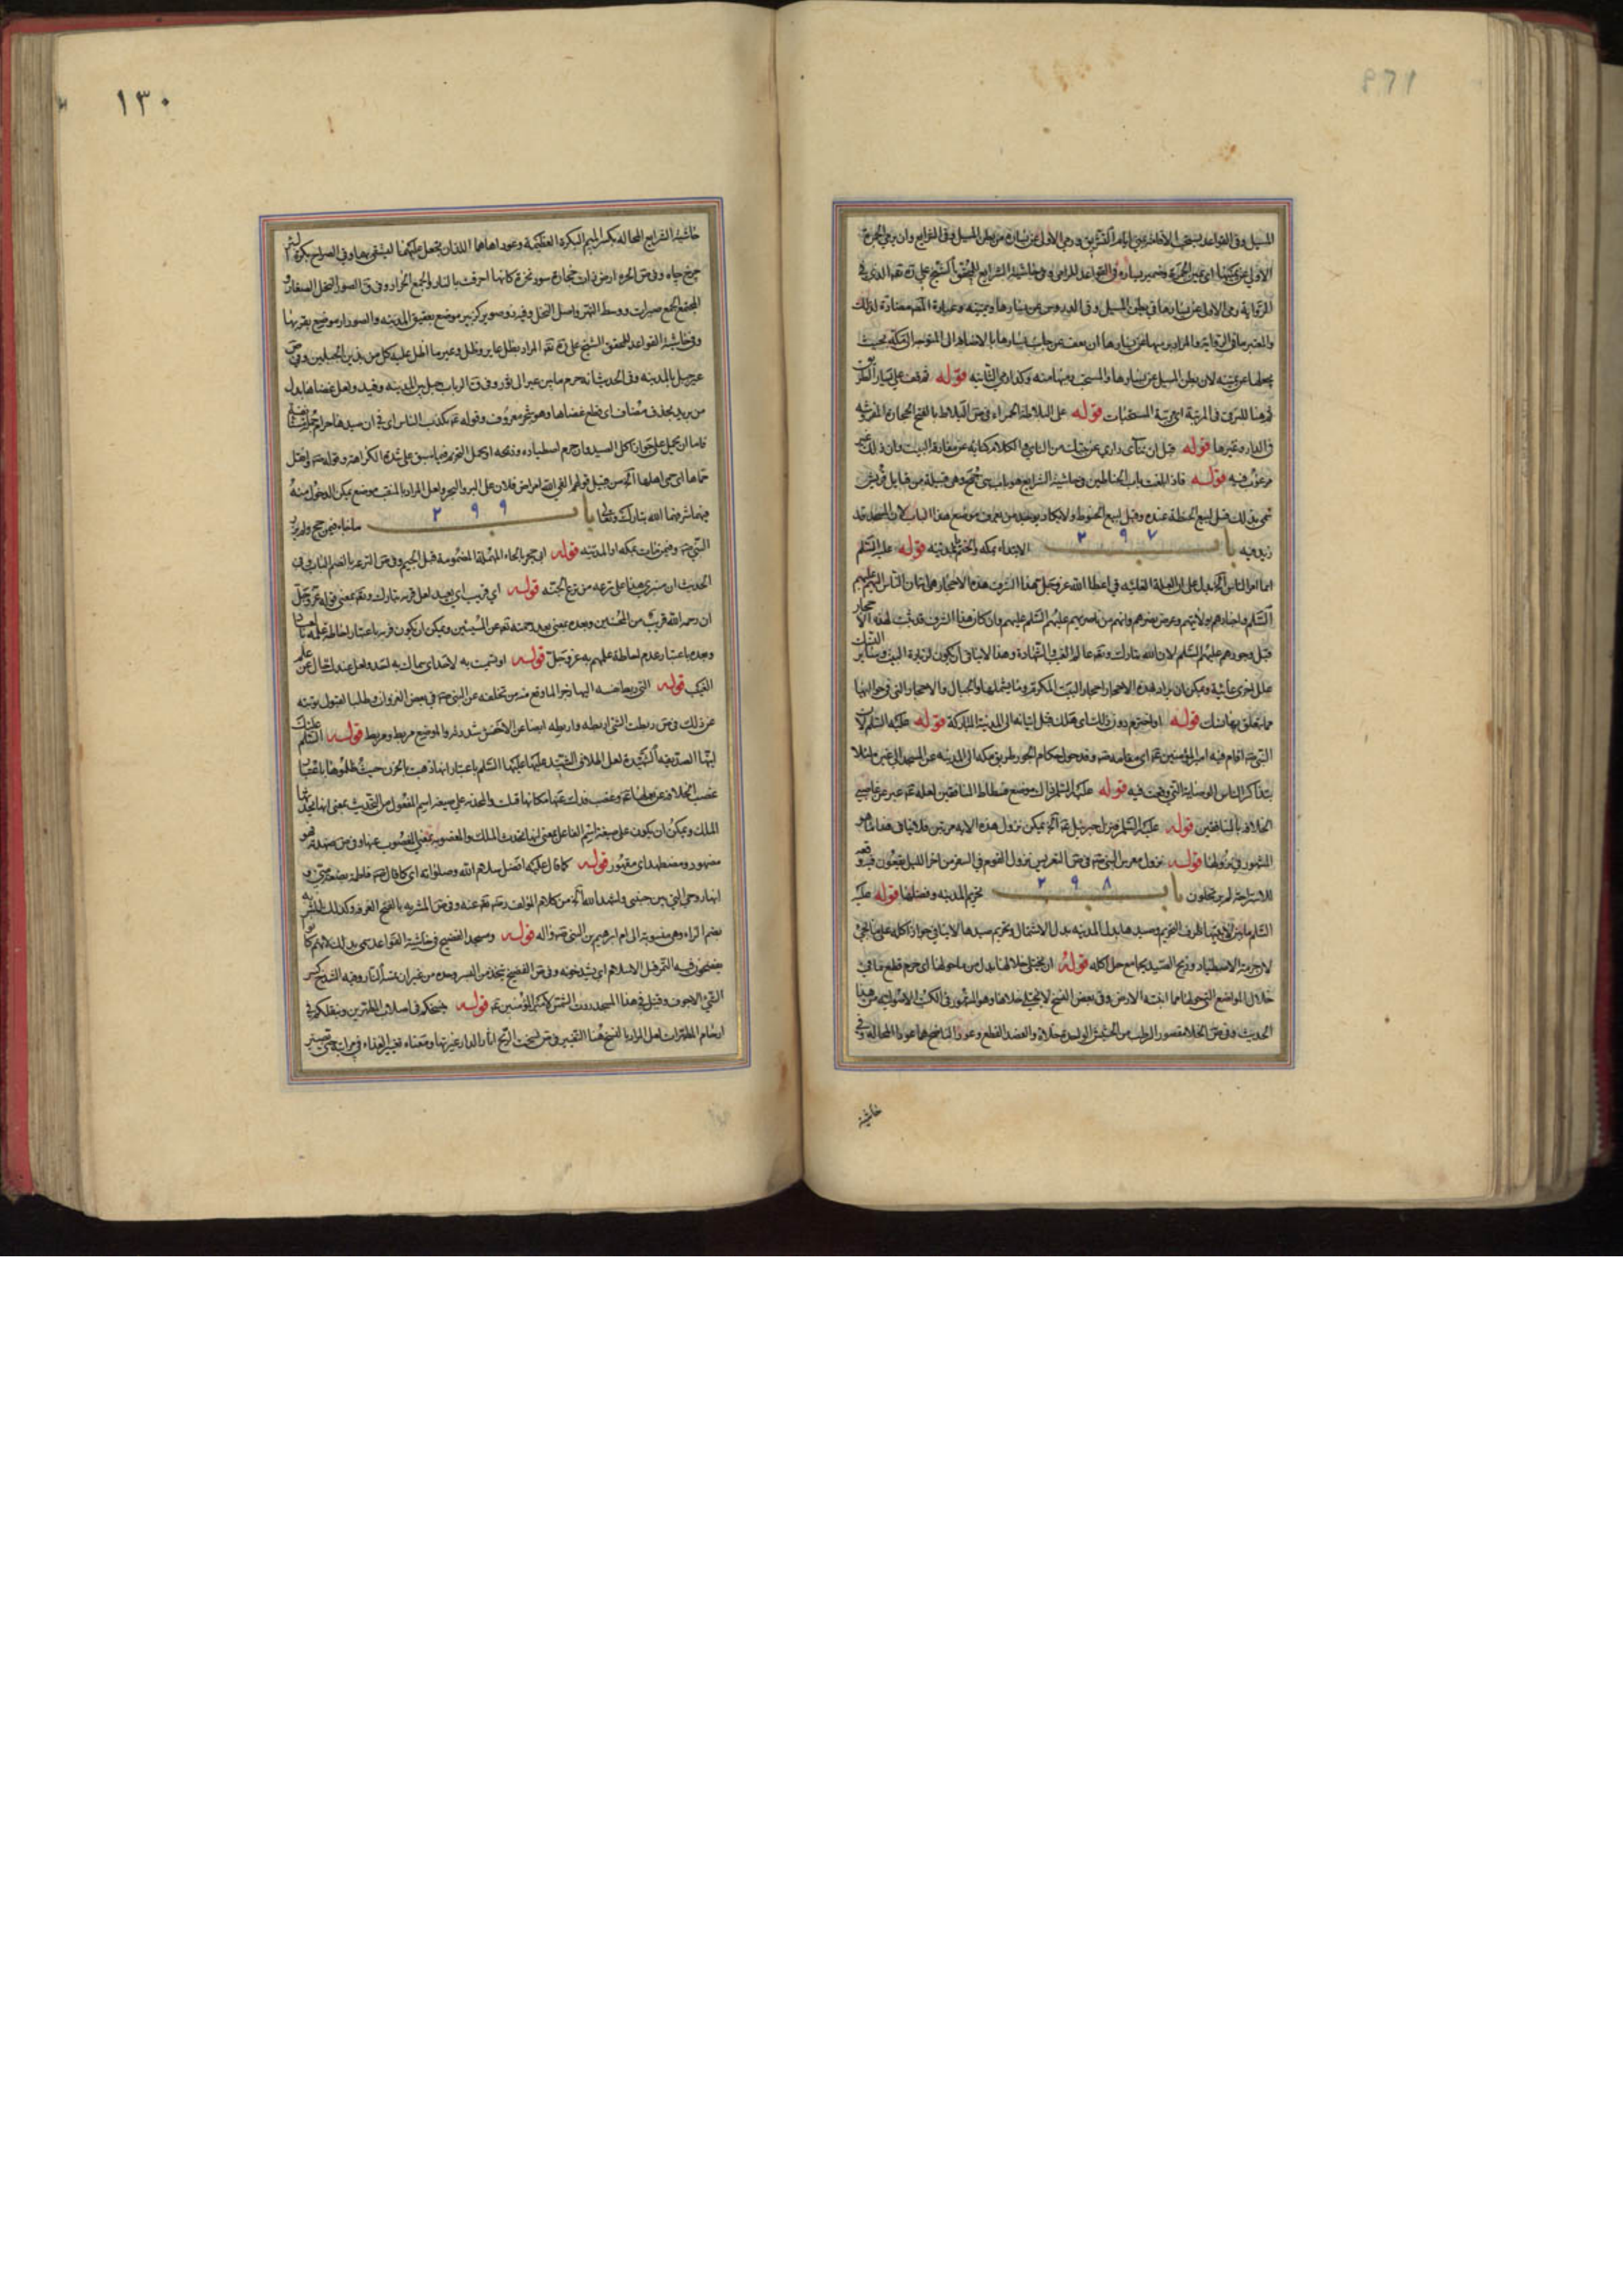 ١٣٠
المسيل وفي القواعد يستحب الاقامة بمنى ايام التشريق ورمي الاولى عن يساره من بطن المسيل وفي الشرايع وان يرمي الجمرة
الاولى عن يمينها اي يمين الجمرة وضمير يساره في القواعد للرامي وفي حاشية الشرايع للمحقق الشيخ علي ره تعه الذي في
الرواية رمى الاولى عن يسارها في بطن المسيل وفي الدروس عن يسارها ويمينه وعبارة المصـ
والمعتبر ما في الرواية والمراد برميها عن يسارها ان يقف عن جانب يسارها بالاضافة الى المتوجه الى القبلة بحيث
يجعلها عن يمينه لان بطن المسيل عن يسارها والمستحب رميها منه وكذا رمي الثانية قوله ثم قف على يسار الطريق
ثم هنا للترقي في المرتبة اي مرتبة المستحبات قوله على البلاطة الحمراء في ص البلاط بالفتح الحجارة المفروشة
في الدار وغيرها قوله قبل ان تنأى داري عن بيتك من النائي والكلام كناية عن مفارقة البيت وان ذلك غير
مرغوب فيه قوله فاذا بلغت باب الحناطين وحاشية الشرايع هو باب بني جمح وهي قبيلة من قبايل قريش
سمي بذلك قيل لبيع الحنطة عنده وقيل لبيع الحنوط ولا يكاد يوجد من يعرف موضع هذا الباب لان المسجد قد
زيد فيه باب ٢٩٧ الابتداء بمكة والختم بالمدينة قوله عليه السلم
انما امر الناس الخ يدل على ان العلة الغائية في اعطاء الله عز وجل هذا الشرف هذه الاحجار هو اتيان الناس اليهم عليهم
السلم واخبارهم بولايتهم وعرض نصرهم وانهم من ناصريهم عليهم السلم عليهم وان كان هذا الشرف قد ثبت لهذه الاحجار
قبل وجودهم عليهم السلم لان الله تبارك وتعه عالم الغيب والشهادة وهذا لا ينافي ان يكون لزيارة البيت وسائر المناسك
علل اخرى غائية ويمكن ان يراد بهذه الاحجار احجار البيت المكرم وما يشملها والجبال والاحجار التي في حواليها
مما يتعلق بها نسك قوله او اخترم دون ذلك اي هلك قبل اتيانه الى المدينة المباركة قوله عليه السلم لان
النبي ص اقام فيه امير المؤمنين ع اي مقامه ص وقد حول حكام الجور طريق مكة الى المدينة عن المسجد الغدير لئلا
يتذاكر الناس الوصاية التي وقعت فيه قوله عليه السلم ذاك موضع فسطاط المنافقين لعله ع عبر عن غاصبي
الخلافة بالمنافقين قوله عليه السلم فنزل جبرئيل ع الخ يمكن نزول هذه الاية مرتين فلا ينافي هذا ما هو
المشهور في نزولها قوله نزول معرس النبي ص في ص التعريس نزول القوم في السفر من اخر الليل يقعون فيه وقعة
للاستراحة ثم يرتحلون باب ٢٩٨ تحريم المدينة وفضلها قوله عليه
السلم ما بين لابتيها ظرف التحريم وصيدها بدل المدينة بدل الاشتمال وتحريم صيدها لا ينافي جواز اكله على ما يجيء
لان حرمة الاصطياد وذبح الصيد يجامع حل اكله قوله ان يختلى خلالها بدل من ما حولها اي حرم قطع ما في
خلال المواضع التي حولها مما انبته الارض وفي بعض النسخ لا يختلى خلاها وهو المشهور في الكتب الاصولية من هذا
الحديث وفي ص الخلا مقصور الرطب من الحشيش الواحدة خلاة والعضد القطع وعودا الناضح هما عودا المحالة وفي
حاشية
حاشية الشرايع المحالة بكسر الميم البكرة العظيمة وعوداها هما اللذان يجعل عليهما ليستقى بها وفي الصراح بكرة
چرخ چاه وفي ص الحرة ارض ذات حجارة سود نخرة كانها احرقت بالنار والجمع الحرار وفي ق الصور النخل الصغار
المجتمع الجمع صيران ووسط النهر واصل النخل وقرية وصوير كزبير موضع بعقيق المدينة والصوران موضع بقربها
وفي حاشية القواعد للمحقق الشيخ علي ره تعه المراد بظل عاير وظل وعير ما اظل عليه كل من هذين الجبلين وفي ص
عير جبل بالمدينة وفي الحديث انه حرم ما بين عير الى ثور وفي ق الرباب جبل بين المدينة وفيد ولعل عضاها بدل
من بريد بحذف مضاف اي قطع عضاها وهو شجر معروف وقوله ع يكذب الناس اي في ان صيدها حرام
فاما ان يحمل على جواز اكل الصيد وان حرم اصطياده وذبحه او يحمل التحريم فيما سبق على شدة الكراهة وقوله ص وانقل
حماها اي حمى اهلها الخ من قبيل قولهم الفي الله امراض فلان على البر والبحر ولعل المراد بالمنقب موضع يمكن الدخول منه
فيهما شرفهما الله تبارك وتعالى باب ٢٩٩ ما جاء فيمن حج ولم يزر
النبي ص وفيمن مات بمكة او المدينة قوله ابي حجر بالحاء المهملة المضمومة قبل الجيم وفي ص الترعة بالضم الباب وفي
الحديث ان منبري هذا على ترعة من ترع الجنة قوله اي قريب اي بعيد لعل قربه تبارك وتعه بمعنى قوله عز وجل
ان رحمة الله قريب من المحسنين وبعده بمعنى بعد رحمته تعه عن المسيئين ويمكن ان يكون قربه باعتبار احاطة علمه بنا
وبعده باعتبار عدم احاطة علمهم به عز وجل قوله
الغيب قوله
عن ذلك وفي ص ربطت الشيء اربطه واربطه ايضا عن الاخفش شددته والموضع مربط ومربط قوله السلم عليك
ايتها الصديقة الشهيدة لعل اطلاق الشهيد عليها عليها السلم باعتبار انها ذهبت بالحزن حيث ظلموها باعتبار
غصب الخلافة عن بعلها ع وغصب فدك عنها مكانها قتلت والمحدثة على صيغة اسم المفعول من التحديث بمعنى انها تحدثها
الملك ويمكن ان يكون على صيغة اسم الفاعل بمعنى انها تحدث الملك والمغصوبة بمعنى المغصوب عنها وفي ص ضهدته فهو
مضهود ومضطهد اي مقهور قوله كما قال عليه افضل سلام الله وصلواته اي كما قال ص فاطمة بضعة مني و
انها روحي التي بين جنبي واشهد الله الخ من كلام المؤلف رحمه تعه عنه وفي ص المشربة بالفتح الغرفة وكذلك المشربة
بضم الراء وهي منسوبة الى ام ابراهيم بن النبي ص واله قوله ومسجد الفضيخ في حاشية القواعد سمي بذلك لانهم كانوا
يفضخون فيه التمر قبل الاسلام اي يشدخونه وفي ص الفضيخ يتخذ من البسر وحده من غير ان تمسه النار وفيه الشدخ كسر
الشيء الاجوف وقيل في هذا المسجد ردت الشمس لامير المؤمنين ع قوله ينسخكم في اصلاب المطهرين وينقلكم في
ارحام المطهرات لعل المراد بالنسخ هنا التغيير في ص نسخت الريح اثار الدار غيرتها ومعناه تغيير الغذاء في مراتبه حتى تصير